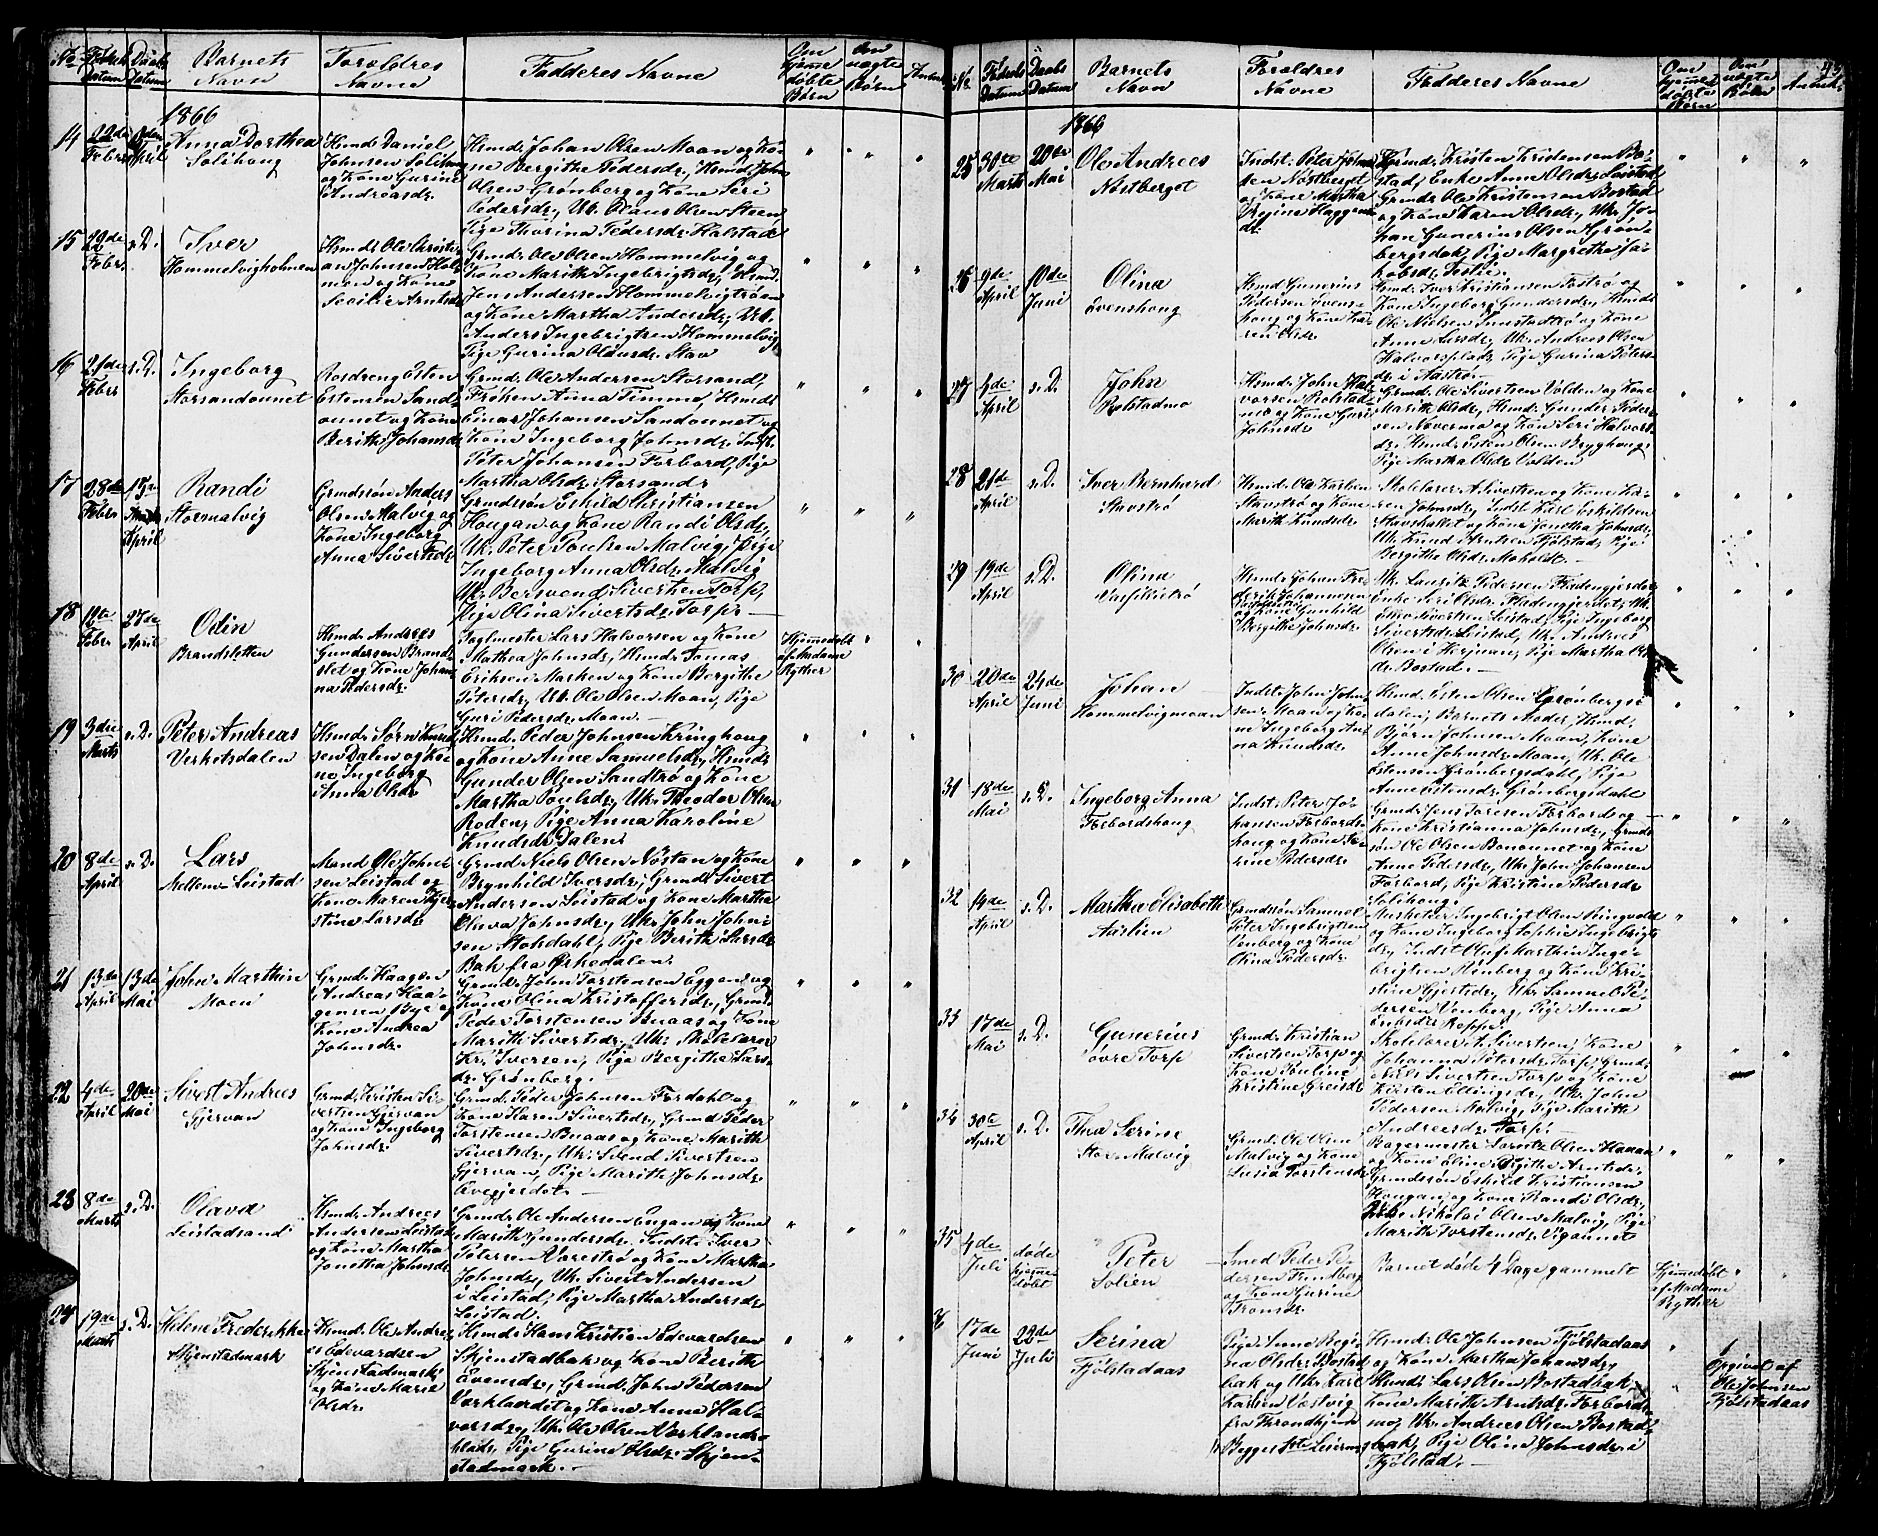 No. Fødsels Datum Daabs Datum Barnets Navn Forældres Navne Fadderes Navne Om hjemme døbte Børn Om uægte Børn Anmærk.
1866
14 22de Febr. April Anna Dorthea Solihoug
Hmd. Daniel
Johnsen Solihoug
og Kone Gurine
Andreasdr.
Hmd. Johan Olsen Moan og Ko-
ne Bergithe Pedersdr., Hmd. John
Olsen Grønberg og Kone Seri
Pedersdr., Uk. Olaus Olsen Steen
Pige Thorina Pedersdr. Halstad
15 22de Febr. s. D. Iver Hommelvigholmen
Hmd. Ole Christi-
an Johnsen Hol-
men og Kone
Secilie Arntsdr.
Grmd. Ole Olsen Hommelvig og
Kone Marith Ingebrigtsdr., Hmd.
Jens Andersen Hommelvigtrøen
og Kone Martha Andersdr., Uk.
Anders Ingebrigtsen Hommelvig
Pige Gurina Olausdr. Stav
16 21de Febr. s. D. Ingeborg Storsandounet
Baadreng Esten
Estensen Sand-
ounet og Kone
Berith Johansdr.
Grmd. Ole Andersen Storsand,
Frøken Anna Timme, Hmd.
Einar Johansen Sandounet og
Kone Ingeborg Johnsdr., Indst.
Peter Johansen Forbord, Pige
Martha Olsdr. Storsand
17 28de Febr. 15de April Randi Stormalvig
Grmdssøn Anders
Olsen Malvig og
Kone Ingeborg
Anna Sivertsdr.
Grmdssøn Eskild Christiansen
Hougan og Kone Randi Olsdr.,
Uk. Peter Poulsen Malvig, Pige
Ingeborg Anna Olsdr. Malvig
Uk. Bersvend Sivertsen Torp,
Pige Olina Sivertsdr. Torp. —
18 12te Febr. 27de April Odin Brandsletten
Hmd. Andreas
Gundersen Brand-
slet og Kone Johan-
na Pedersdr.
Faglmester Lars Halvorsen og Kone
Mathea Johnsdr., Hmd. Tomas
Eriksen Marken og Kone Bergithe
Petersdr., Uk. Ole Olsen Moan, Pige
Guri Pedersdr. Moan. —
Hjemmedøbt
af Madame
Rÿther
19 3die Marts s. D. Peter Andreas Verketsdalen
Hmd. Søren Knud-
sen Dalen og Ko-
ne Ingeborg
Anna Olsdr.
Hmd. Peder Johnsen Kringhoug
og Kone Anne Samuelsdr., Hmd.
Gunder Olsen Sandtrø og Kone
Martha Poulsdr., Uk. Theodor Olsen
Roden, Pige Anna Karoline
Knudsdr. Dalen
20 8de April s. D. Lars Mellem Leistad
Mand Ole John-
sen Leistad og
Kone Maren Kjer-
stine Larsdr.
Grmd. Niels Olsen Nøstan og Kone
Brynhild Iversdr., Grmd. Sivert
Andersen Leistad og Kone Martha
Olava Johnsdr., Uk. John John-
sen Stokdahl, Pige Berith Larsdr.
Bak fra Ørkedalen.
21 13de April 13de Mai John Marthin Moen
Grmd. Haagen
Andreas Haa-
gensen Bye og
Kone Andrea
Johnsdr.
Grmd. John Torstensen Eggen og
Kone Olina Kristoffersdr., Grmd.
Peder Torstensen Buaas og Kone
Marith Sivertsdr., Uk. Skolelærer
Kr. Iversen, Pige Bergithe Lars-
dr. Grønberg. —
22 4de April 20de Mai Sivert Andreas Gjervan
Grmd. Kristen Si-
vertsen Gjervan
og Kone Ingeborg
Johnsdr.
Grmd. Peder Johnsen Fordahl og
Kone Karen Sivertsdr., Grmd. Peder
Torstensen Buaas og Kone Marith
Sivertsdr., Uk. Svend Sivertsen
Gjervan, Pige Marith Johnsdr.
Avegjerdet. —
23 8de Marts s. D. Olava Leistadsand
Hmd. Andreas
Andersen Leistad
og Kone Martha
Jonetha Johnsdr.
Grmd. Ole Andersen Engan og Kone
Marith Gundersdr., Indste Iver
Petersen Aarestrø og Kone Martha
Johnsdr., Uk. Sivert Andersen
i Leistad, Pige Martha Andersdr.
Leistad.
24 19de Marts s. D. Helene Frederikke Skjenstadmark
Hmd. Ole Andre-
as Edevardsen
Skjenstadmark
og Kone Marie
Olsdr.
Hmd. Hans Kristian Edevardsen
Skjenstadbak og Kone Berith
Evensdr., Grmd. John Pedersen
Væreklandet og Kone Anna Hal-
vorsdr., Uk. Ole Olsen
Pige Gurine Olsdr. Skjen-
stadmark. —
No. Fødsels Datum Daabs Datum Barnets Navn Forældres Navne Fadderes Navne Om hjemme døbte Børn Om uægte Børn Anmærk.
1866
25 30te Marts 20de Mai Ole Andreas Nøstberget
Indst. Peter John-
sen Nøstberget
og Kone Martha
Regine Haggens-
dr.
Grmd. Kristen Kristensen Bo-
stad, Enke Anne Olsdr. Leistad,
Grmd. Ole Kristensen Bostad
og Kone Karen Olsdr., Uk. Jo-
han Gunerius Olsen Grøn-
bergsbak, Pige Margretha Ja-
kobsdr.
26 9de April 10de Juni Olina Svenshoug
Hmd Gunerius
Pedersen Svens-
houg og Kone Ka-
ren Olsdr.
Hmd. Iver Kristiansen Tostrø og
Kone Ingeborg Gundersdr., Hmd.
Ole Nielsen Saxstadtrø og Kone
Anne Larsdr., Uk. Andreas Olsen
Halvorsplads, Pige Gurina Peters-
dr. i Aastrø. —
27 4de April s. D. John Rolstadmo
Hmd. John Hal-
vorsen Rolstad-
mo og Kone Guri
Johnsdr.
Grmd. Ole Sivertsen Volden og Kone
Marith Olsdr., Hmd. Gunder Peder-
senÆvermo og Kone Seri Halvors-
dr., Hmd. Esten Olsen Brÿghoug,
Pige Martha Olsdr. Volden
28 21de April s. D. Iver Bernhard Stavstrø
Hmd. Ole Karlsen
Stavstrø og Kone
Marith Knudsdr.
Skolelærer A. Sivertsen og Kone Ka-
ren Johnsdr., Indst. Karl Eskildsen
Stavshallet og Kone Jonetha Johnsdr.
Uk. Knud Arntsen Fjølstad, Pige
Bergithe Olsdr. Moholdt. —
29 19de April s. D. Olina
Hmd. Johan Fre-
derik Johannesen
og Kone Gunhild
Bergithe Johnsdr.
Uk. Lauritz Pedersen Fladengjerdet
Enke Seri Olsdr. Fladengjerdet, Uk.
Sivertsen Leistad, Pige Ingeborg
Sivertsdr. Leistad, Uk. Andreas
Olsen i Herjuan, Pige Martha Ols-
dr. Bostad. —
30 20de April 24de Juni Johan Hommelvigmoan
Indst. John John-
sen Moan og Ko-
ne Ingeborg An-
na Knudsdr.
Hmd. Esten Olsen Grønbergs-
dalen, Barnets Moder, Hmd.
Bjørn Johnsen Moan, Kone
Anne Johnsdr. Moan, Uk. Ole
Estensen Grønbergsdahl, Pige
Anne Estensdr. Grønbergsdahl
31 18de Mai s. D. Ingeborg Anna Forbordshoug
Indst. Peter Jo-
hansen Forbords-
houg og Kone Se-
rine Pedersdr.
Grmd. Jens Toresen Forbord og
Kone Kristianna Johnsdr., Grmds-
søn Ole Olsen Bonounet og Kone
Anne Pedersdr., Uk. John Johansen
Forbord, Pige Kristine Pedersdr.
Solihoug.
32 14de April s. D. Martha Elisabeth Aaslien
Grmdssøn Samuel
Peter Ingebrigtsen
Venberg og Kone
Olina Pedersdr.
Musketeer Ingebrigt Olsen Ringvold
og Kone Ingeborg Sophie Ingebrigts-
dr., Indst. Oluf Marthin Inge-
brigtsen Venberg og Kone Kri-
stine Gjertsdr., Uk. Samuel Pe-
dersen Venberg, Pige Anna
Reppe.
33 17de Mai s. D. Gunerius øvre Torp
Grmd. Kristian
Sivertsen Torp og
Kone Pauline
Kristine Greisdr.
Skolelærer A. Sivertsen, Kone
Johanna Petersdr. Torp, Grmd.
Niels Sivertsen Torp og Kone
Kiersten Ellingsdr., Uk. John
Pedersen Malvig, Pige Marith
Andreasdr. Torp.
34 30te April s. D. Thea Serine Stor Malvig
Grmd. Ole Olsen
Malvig og Kone
Lucia Torstensdr.
Bagermester Lorentz Olsen Hanan
og Kone Eline Birgithe Arntsdr.,
Grmdssøn Eskild Kristiansen
Hougan og Kone Randi Olsdr.,
Uk. Nikolai Olsen Malvig, Pige
Marith Torstensdr. Vigounet
35 4de Juli døde hjemme døbt Peter Solien
Smed Peder Pe-
dersen Findberg
og Kone Gurine
Thomsdr.
Barnet døde 4 Dage gammelt
Hjemmedøbt
af Madame
Rÿther
36 17de Juni 22de Juli Serina Fjølstadaas
Pige Anne Regi-
na Olsdr. Bostad-
bak og Uk. Karl
Karlsen Vestvig
fra Throndhjem
Begges 1ste Leiermaal
Hmd. Ole Johnsen Fjølstadaas
og Kone Martha Johansdr.,
Hmd. Lars Olsen Bostadbak
Kone Marith Arntsdr. Forbord-
mo, Uk. Andreas Olsen Bostad-
bak, Pige Olina Johnsdr. i
Fjølstad. —
Opgivet af
Ole Johnsen
Fjølstadaas